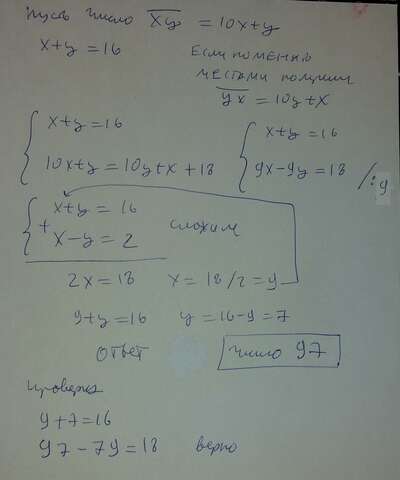 Пусть число xy = 10x+y
x+y=16 Если поменять
местами получим
yx = 10y+x
x+y=16 x+y=16
10x+y=10y+x+18 9x-9y=18 /:9
x+y=16
+ x-y=2 сложим
2x=18 x=18/2=9
9+y=16 y=16-9=7
Ответ число 97
Проверка
9+7=16
97-79=18 верно